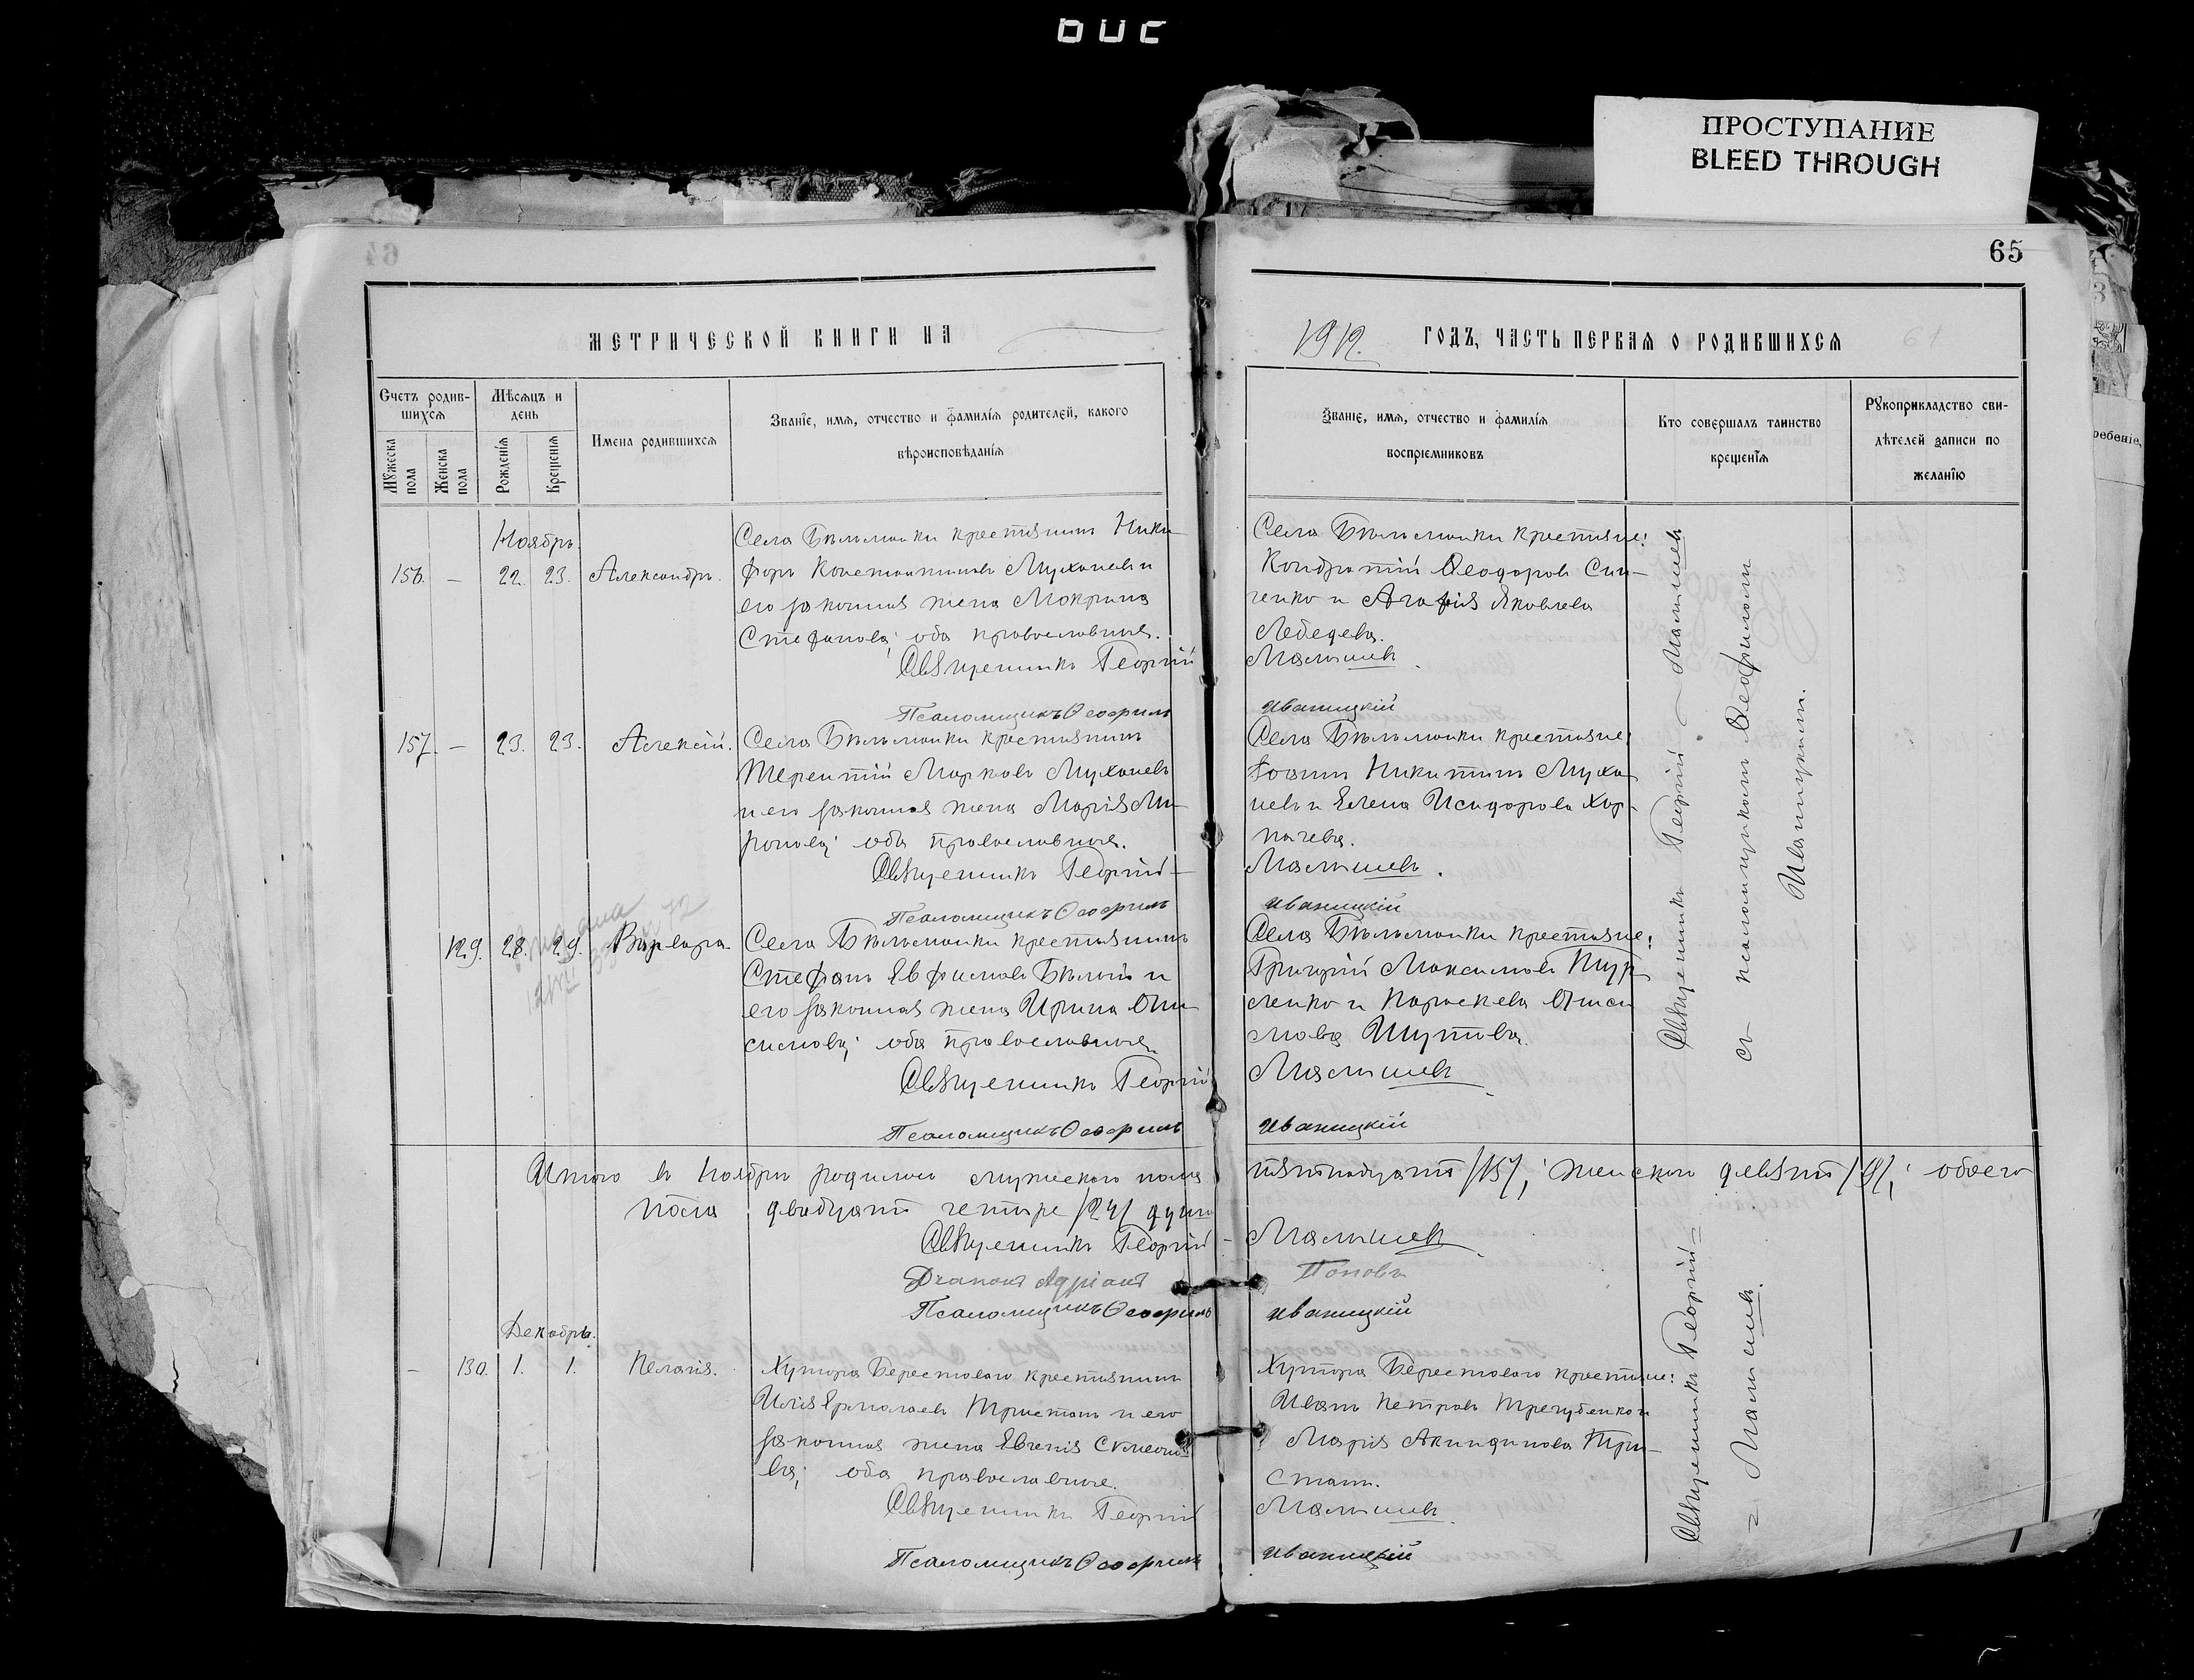 ПРОСТУПАНИЕ
BLEED THROUGH
65
МЕТРИЧЕСКОЙ КНИГИ НА
1912. ГОДЪ, ЧАСТЬ ПЕРВАЯ О РОДИВШИХСЯ
Счетъ родив-
шихся
Мѣсяцъ и
день
Мужеска
пола
Женска
пола
Рожденія
Крещенія
Имена родившихся
Званіе, имя, отчество и фамилія родителей, какого
вѣроисповѣданія
Званіе, имя, отчество и фамилія
воспріемниковъ
Кто совершалъ таинство
крещенія
Рукоприкладство сви-
дѣтелей записи по
желанію
Ноябрь.
156. — 22. 23. Александръ.
Села Бѣльманки крестьянинъ Ники-
форъ Константиновъ Мухановъ и
его законная жена Мокрина
Стефанова; оба православные.
Священникъ Георгій
Псаломщикъ Ѳеофилъ
Села Бѣльманки крестьяне:
Кондратій Ѳеодоровъ Син-
ченко и Агафія Яковлева
Лебедева.
Малышевъ.
Иваницкій
157. — 23. 23. Алексій.
Села Бѣльманки крестьянинъ
Терентій Марковъ Мухановъ
и его законная жена Марія Ми-
ронова; оба православные.
Священникъ Георгій
Псаломщикъ Ѳеофилъ
Села Бѣльманки крестьяне:
Іоаннъ Никитинъ Муха-
новъ и Елена Исидорова Хар-
пачева.
Малышевъ.
Иваницкій
129. 28. 29. Варвара.
Села Бѣльманки крестьянинъ
Стефанъ Евфимовъ Бѣлый и
его законная жена Ирина Они-
симова; оба православные.
Священникъ Георгій
Псаломщикъ Ѳеофилъ
Села Бѣльманки крестьяне:
Григорій Максимовъ
ленко и Параскева Ониси-
мова Шутова.
Малышевъ.
Иваницкій
Священникъ Георгій — Малышевъ
съ псаломщикомъ Ѳеофиломъ
Иваницкимъ.
Итого въ Ноябрѣ родилось мужескаго пола пятнадцать /15/; женскаго девять /9/; обоего
пола двадцать четыре /24/ души
Священникъ Георгій Малышевъ.
Діаконъ Адріанъ Поповъ
Псаломщикъ Ѳеофилъ Иваницкій
Декабрь.
— 130. 1. 1. Пелагія.
Хутора Берестоваго крестьянинъ
Илія Ермолаевъ Тристанъ и его
законная жена Евгенія Симеоно-
ва; оба православные.
Священникъ Георгій
Псаломщикъ Ѳеофилъ
Хутора Берестоваго крестьяне:
Иванъ Петровъ Трегубенко и
Марія Акиндинова Три-
станъ.
Малышевъ.
Иваницкій
Священникъ Георгій =
= Малышевъ.